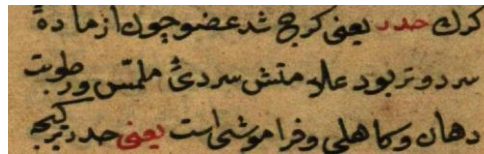 کرک خدر یعنی کرخ شد عضو چون از مادهٔ
سرد و تر بود علامتش سردئ ملمس و رطوبت
دهان و کاهلی و فراموشی است یعنی خدر